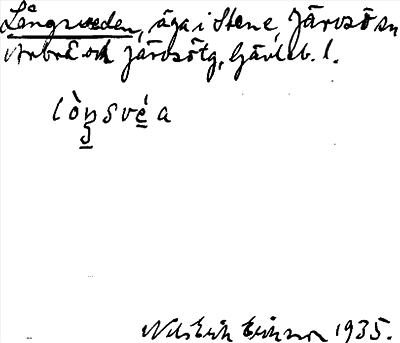 Långsveden, äga i Stene, Järvsö sn
Arbrå och Järvsötg, Gävleb. l.
lòŋsvé̱a
Nils Erik Eriksson 1935.